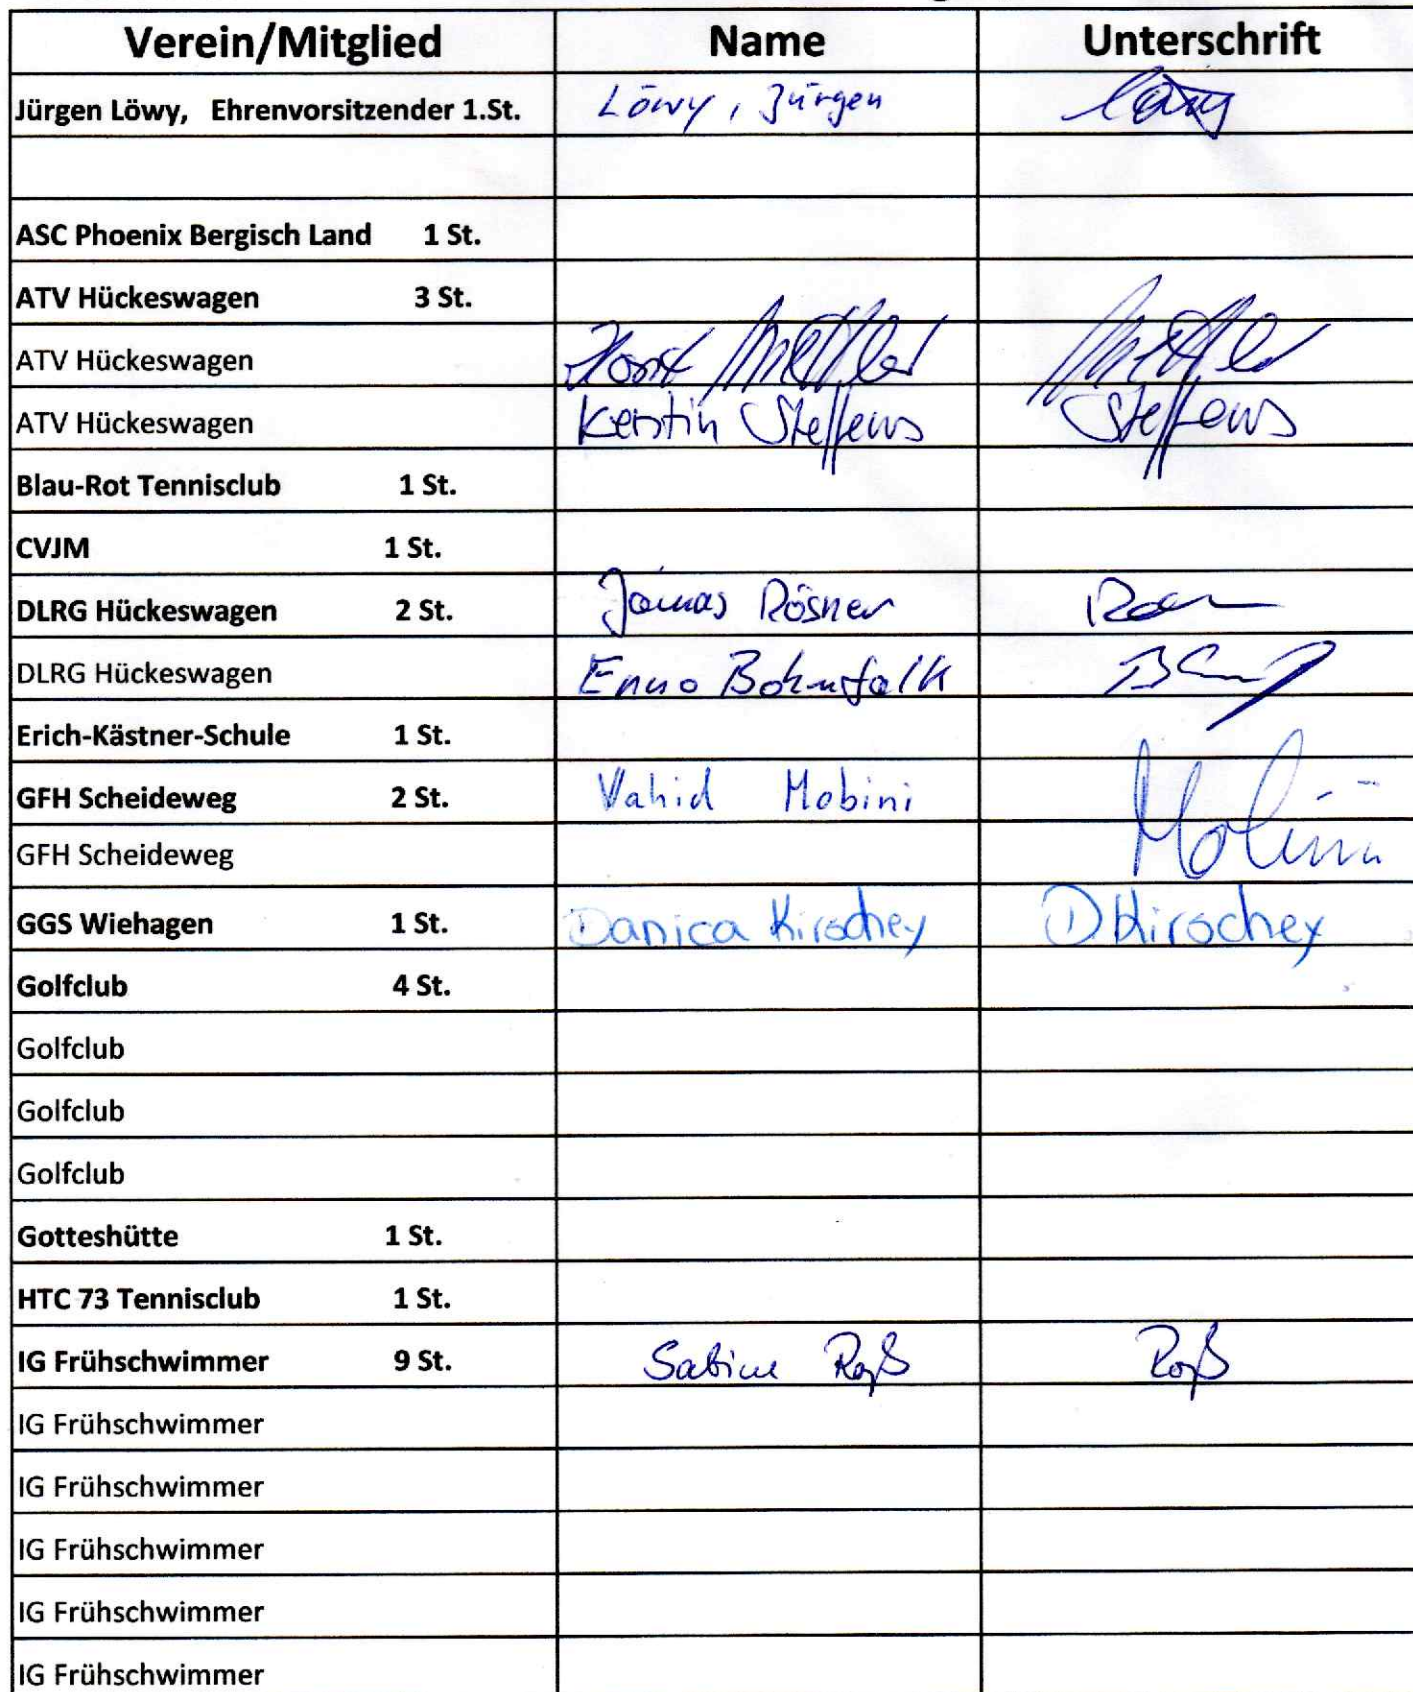 Verein/Mitglied Name Unterschrift
Jürgen Löwy, Ehrenvorsitzender 1.St. Löwy, Jürgen
ASC Phoenix Bergisch Land 1 St.
ATV Hückeswagen 3 St.
ATV Hückeswagen Horst
ATV Hückeswagen Kerstin Steffens Steffens
Blau-Rot Tennisclub 1 St.
CVJM 1 St.
DLRG Hückeswagen 2 St. Rösner
DLRG Hückeswagen Enno Bohnsfalk
Erich-Kästner-Schule 1 St.
GFH Scheideweg 2 St. Vahid Mobini
GFH Scheideweg
GGS Wiehagen 1 St. Danica Kirschey D Kirschey
Golfclub 4 St.
Golfclub
Golfclub
Golfclub
Gotteshütte 1 St.
HTC 73 Tennisclub 1 St.
IG Frühschwimmer 9 St. Sabine Roß Roß
IG Frühschwimmer
IG Frühschwimmer
IG Frühschwimmer
IG Frühschwimmer
IG Frühschwimmer